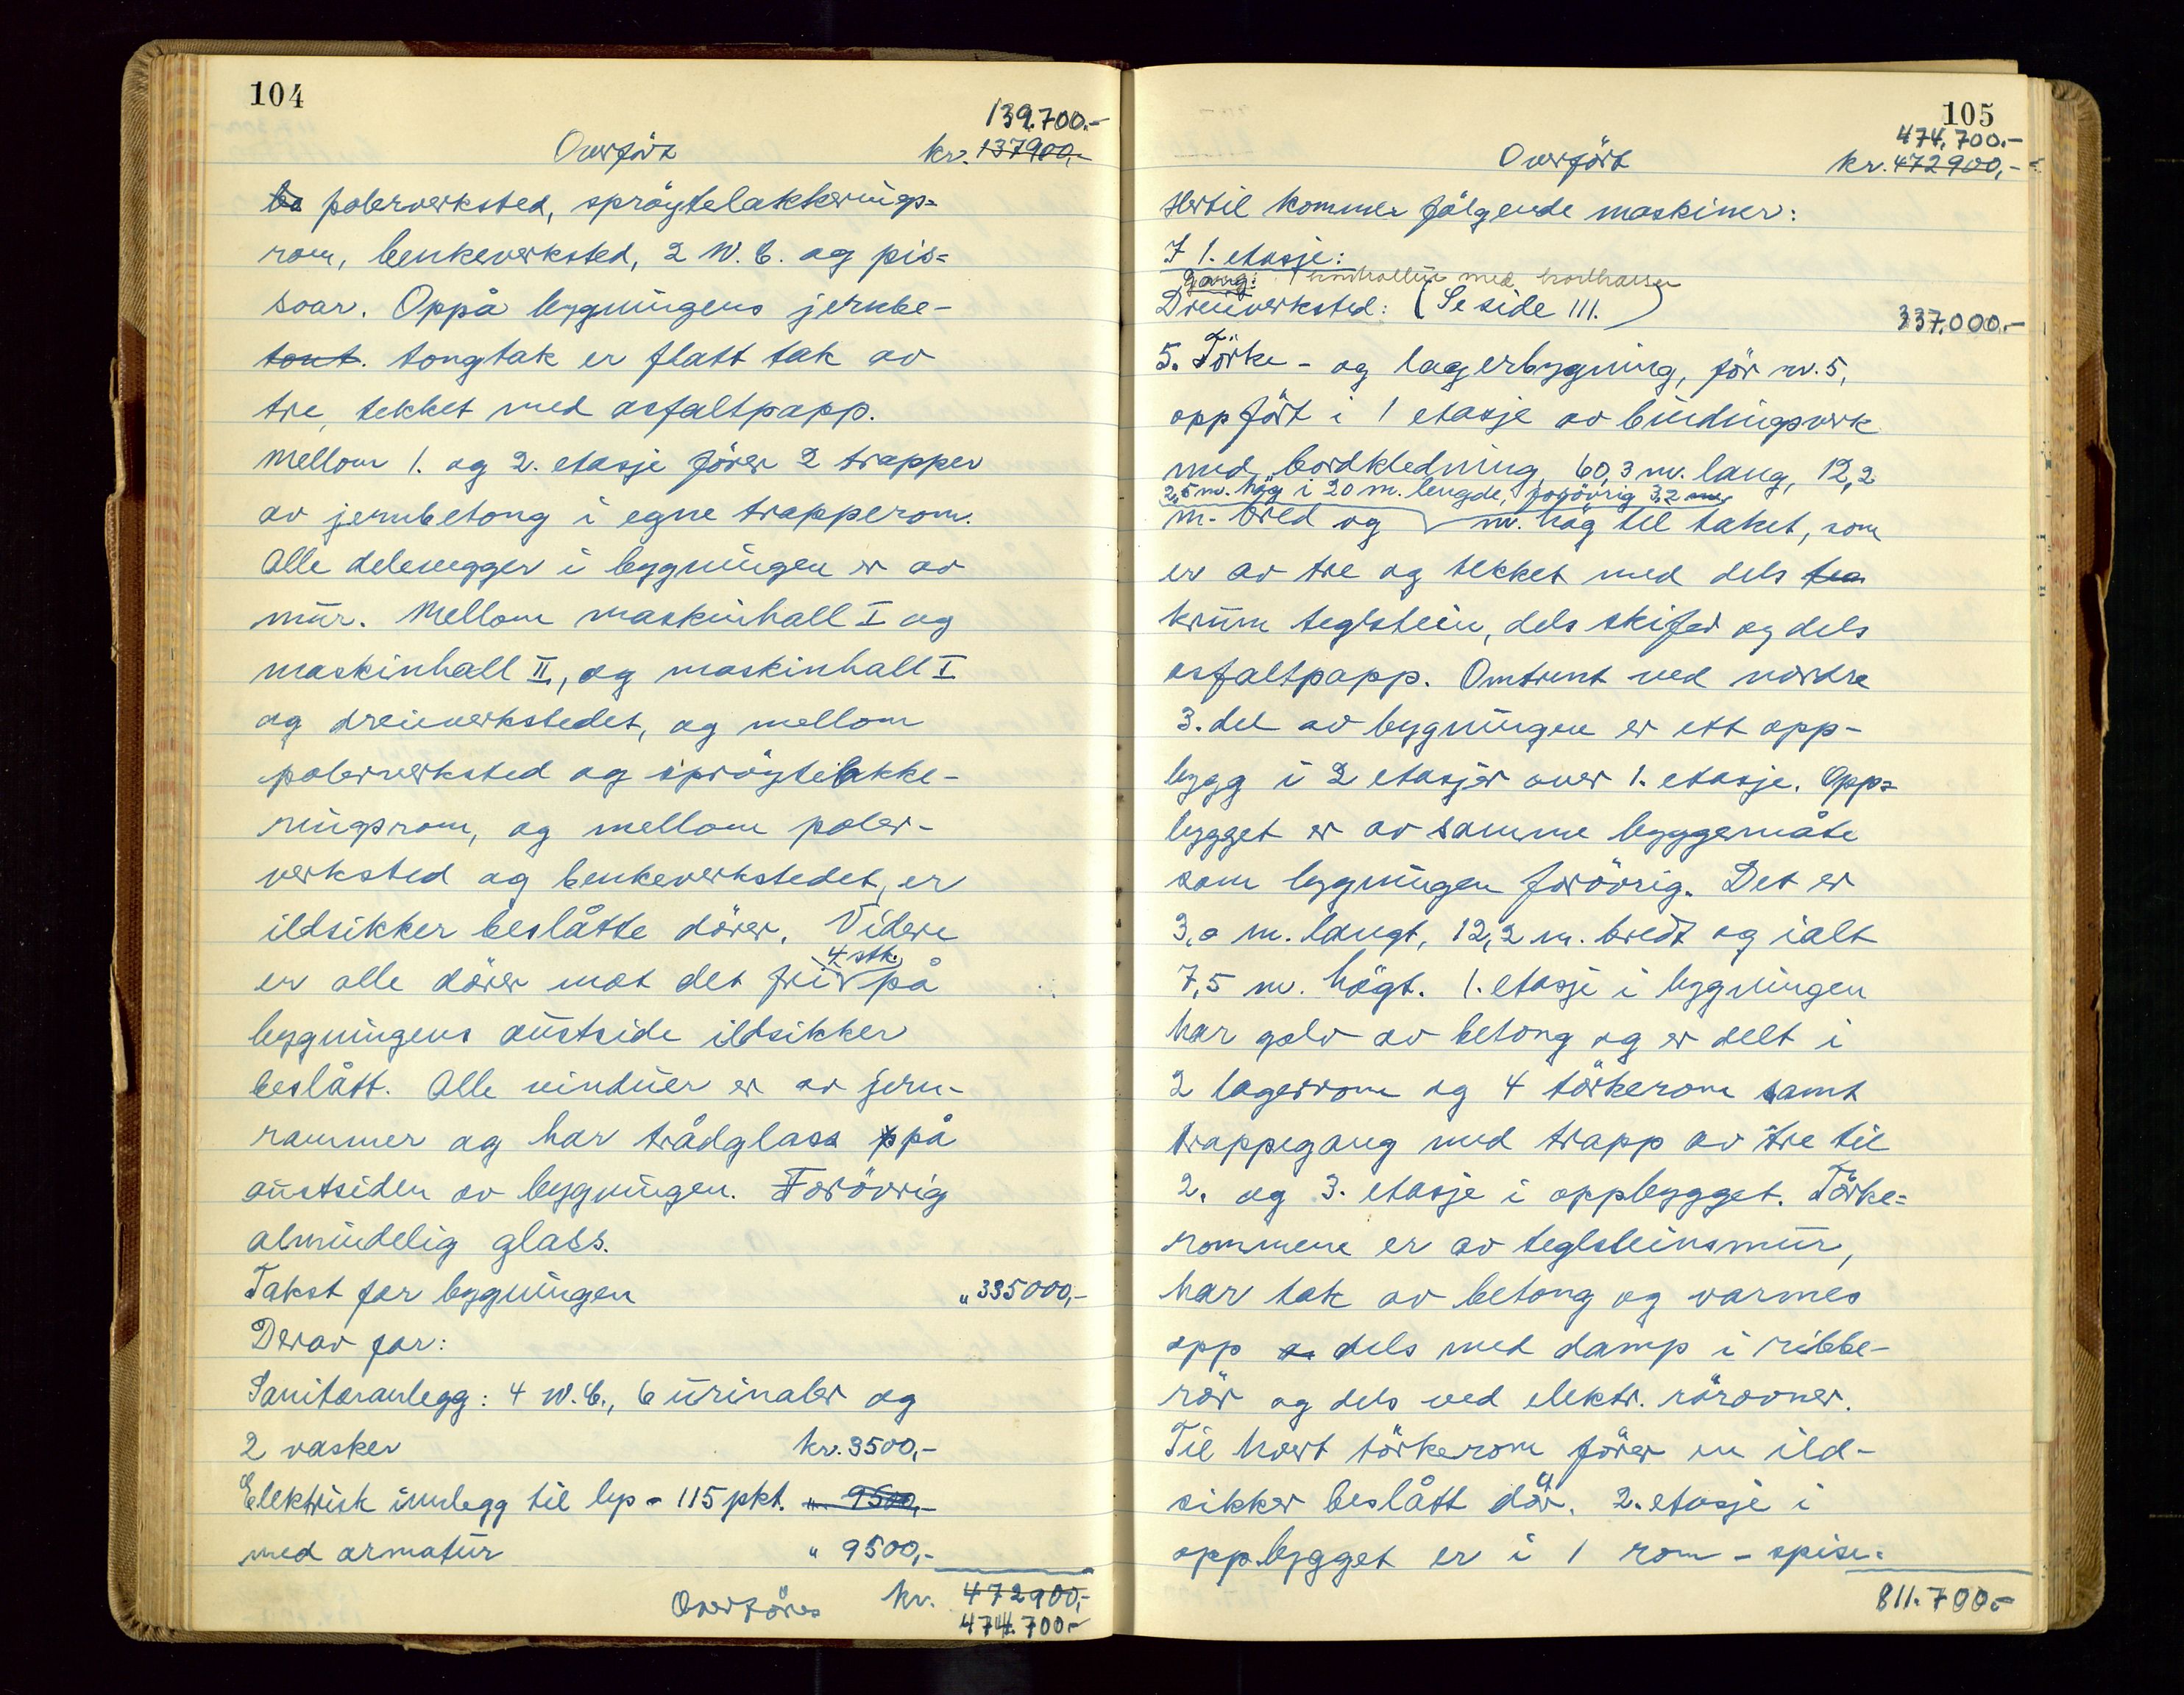 104
139.700.-
Overført kr. 137900,-
be polerverksted, spröytelakkerings=
rom, benkeverksted, 2 W.C. og pis=
soar. Oppå bygningens jernbe-
tont. tongtak er flatt tak av
tre, tekket med asfaltpapp.
Mellom 1. og 2. etasje förer 2 trapper
av jernbetong i egne trapperom.
Alle delevegger i bygningen er av
mur. Mellom maskinhall I og
maskinhall II, og maskinhall I
og dreieverkstedet, og mellom
polerverksted og spröytelakke-
ringsrom, og mellom poler-
verksted og benkeverkstedet, er
ildsikker beslåtte dörer. Videre
4 stk.
er alle dörer mot det fri på
bygningens austside ildsikker
beslått. Alle vinduer er av jern-
rammer og har trådglass på
austsiden av bygningen. Forövrig
almindelig glass.
Takst for bygningen " 335000,-
Derav for:
Sanitæranlegg: 4 W.C., 6 urinaler og
2 vasker kr. 3500,-
Elektrisk innlegg til lys - 115 pkt. " 9500,-
med armatur " 9500,-
Overföres kr. 472900,-
474.700.-
105
474.700.-
Overfört kr. 472900,-
Hertil kommer fölgende maskiner:
I 1. etasje:
Gang: 1 med
Dreieverksted: (Se side 111.) 337.000.-
5. Törke- og lagerbygning, för nr. 5,
oppfört i 1 etasje av bindingsverk
med bordkledning, 60,3 m. lang, 12,2
2,5 m. høg i 20 m. lengde, forövrig 3,2 m.
m. bred og m. høg til taket, som
er av tre og tekket med dels
krum teglstein, dels skifer og dels
asfaltpapp. Omtrent ved nordre
3. del av bygningen er ett opp-
bygg i 2 etasjer over 1. etasje. Opp=
bygget er av samme byggemåte
som bygningen forövrig. Det er
3,0 m. langt, 12,2 m. bredt og ialt
7,5 m. högt. 1. etasje i bygningen
har golv av betong og er delt i
2 lagerrom og 4 törkerom samt
trappegang med trapp av tre til
2. og 3. etasje i oppbygget. Törke=
rommene er av teglsteinsmur,
har tak av betong og varmes
opp dels med damp i ribbe-
rör og dels ved elektr. rörovner.
Til hvert törkerom förer en ild-
sikker beslått dör. 2. etasje i
oppbygget er i 1 rom - spise=
811.700.-